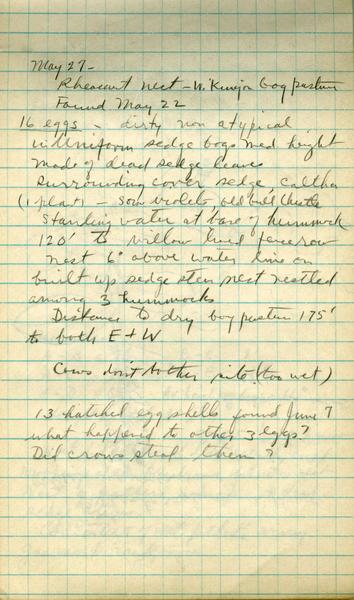 May 27-
Pheasant nest - W. Kumjon bog pasture
Found May 22
16 eggs - dirty non atypical
in uniform sedge bogs med height
made of dead sedge leaves
Surrounding cover sedge, caltha
(1 plant) - some violets, old bull thistle
Standing water at base of hummock
120' to willow lined fencerow
nest 6" above water line on
built up sedge stem nest nestled
among 3 hummocks
Distance to dry bog pasture 175'
to both E + W
Cows don't bother site (too wet)
13 hatched egg shells found June 7
what happened to other 3 eggs?
Did crows steal them?